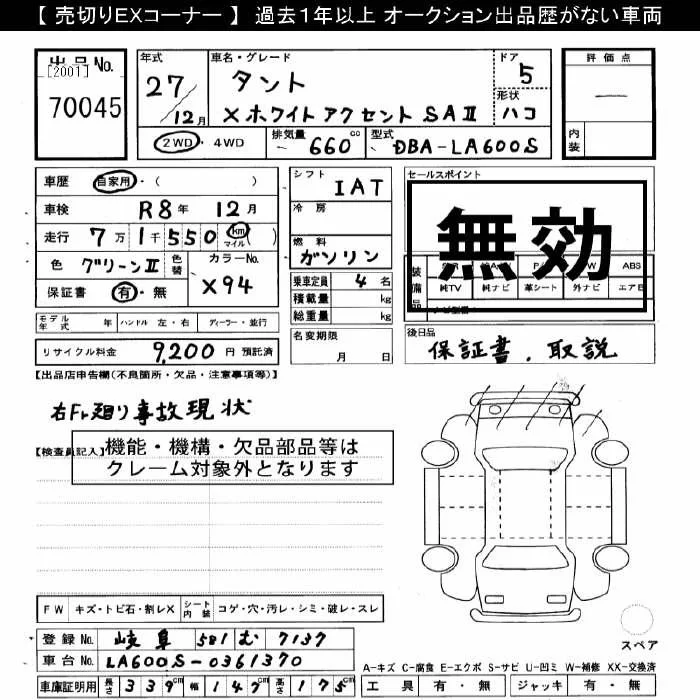 【 売切りEXコーナー 】 過去1年以上 オークション出品歴がない車両
出品No.
[2001]
70045
年式
27/12月
車名・グレード
タント
X ホワイトアクセント SAⅡ
ドア
5
形状
ハコ
評価点
―
内装
2WD ・ 4WD
排気量 660 cc
型式 DBA-LA600S
車歴 自家用・( )
車検 R8年 12月
走行 7万1千550 km マイル ( )
色 グリーンⅡ 色替
カラーNo. X94
保証書 有・無
シフト
IAT
冷房
燃料
ガソリン
乗車定員 4 名
積載量 kg
総重量 kg
名変期限
月 日
セールスポイント
無効
装備品
ABS
純TV 純ナビ 革シート 外ナビ エアB
モデル年式 年 ハンドル 左・右 ディーラー・並行
リサイクル料金 9,200 円 預託済
後日品
保証書、取説
【出品店申告欄(不良箇所・欠品・注意事項等)】
右Fr廻り事故現状
【検査員記入】
機能・機構・欠品部品等は
クレーム対象外となります
FW キズ・トビ石・割レX シート内装 コゲ・穴・汚レ・シミ・破レ・スレ
登録No. 岐阜 581 む 7137
車台No. LA600S-0361370
車庫証明用 長さ 339cm 幅 147cm 高さ 175cm
スペア
A-キズ C-腐食 E-エクボ S-サビ U-凹ミ W-補修 XX-交換済
工具 有・無 ジャッキ 有・無